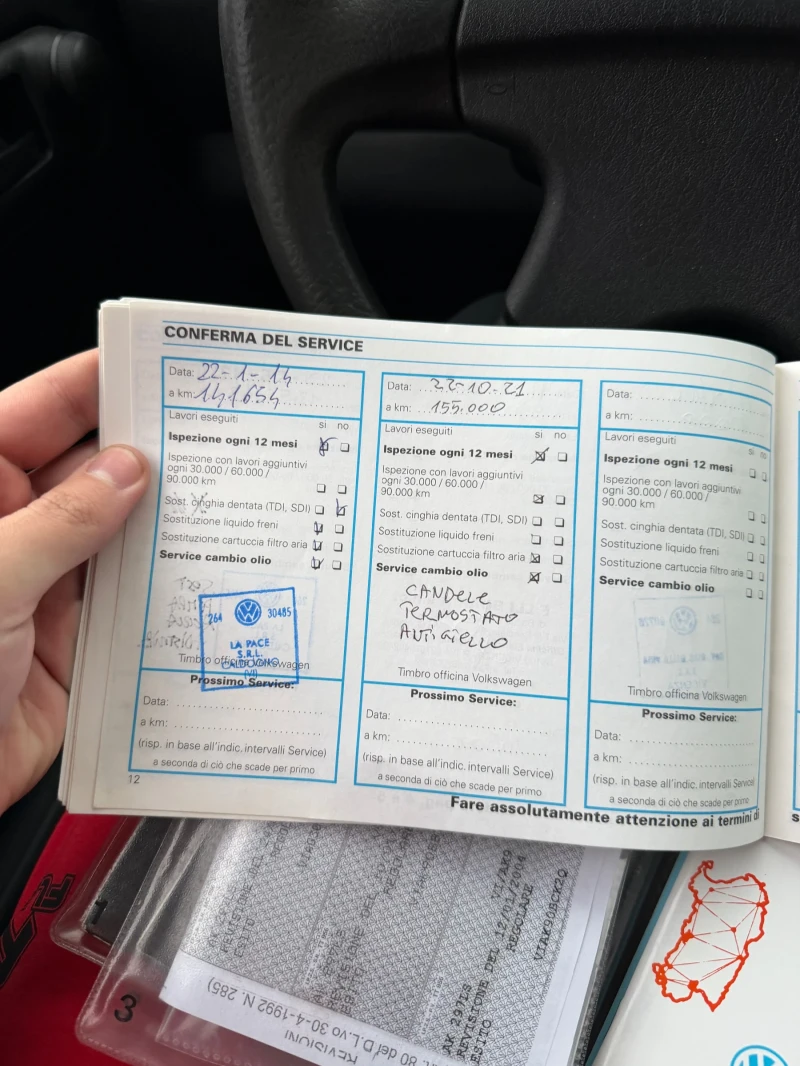 CONFERMA DEL SERVICE
Data: 22-1-14
a km: 141654
Lavori eseguiti
si no
Ispezione ogni 12 mesi
Ispezione con lavori aggiuntivi
ogni 30.000 / 60.000 /
90.000 km
Sost. cinghia dentata (TDI, SDI)
Sostituzione liquido freni
Sostituzione cartuccia filtro aria
Service cambio olio
264 30485
LA PACE
S.R.L.
CALDOGNO
(VI)
Timbro officina Volkswagen
Prossimo Service:
Data:
a km:
(risp. in base all'indic. intervalli Service)
a seconda di ciò che scade per primo
12
Data: 22-10-21
a km: 155.000
Lavori eseguiti
si no
Ispezione ogni 12 mesi
Ispezione con lavori aggiuntivi
ogni 30.000 / 60.000 /
90.000 km
Sost. cinghia dentata (TDI, SDI)
Sostituzione liquido freni
Sostituzione cartuccia filtro aria
Service cambio olio
CANDELE
TERMOSTATO
ANTIGIELLO
Timbro officina Volkswagen
Prossimo Service:
Data:
a km:
(risp. in base all'indic. intervalli Service)
a seconda di ciò che scade per primo
Data:
a km:
Lavori eseguiti
si no
Ispezione ogni 12 mesi
Ispezione con lavori aggiuntivi
ogni 30.000 / 60.000 /
90.000 km
Sost. cinghia dentata (TDI, SDI)
Sostituzione liquido freni
Sostituzione cartuccia filtro aria
Service cambio olio
Timbro officina Volkswagen
Prossimo Service:
Data:
a km:
(risp. in base all'indic. intervalli Service)
a seconda di ciò che scade per primo
Fare assolutamente attenzione ai termini di
1
3
REVISIONE DEL 12/01/2004
REGOLARE
VIAK90BCK2Q
VI/AK9
REVISIONI
80 del D.L.vo 30-4-1992 N. 285)